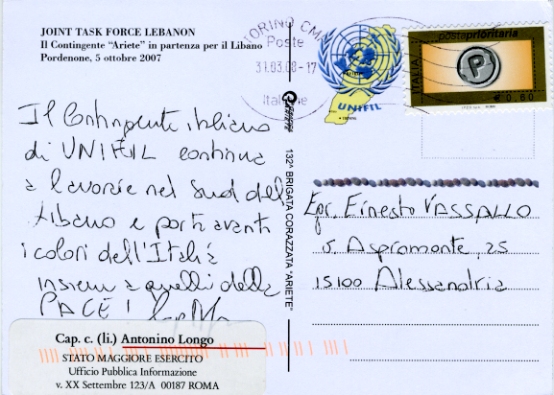 JOINT TASK FORCE LEBANON
Il Contingente "Ariete" in partenza per il Libano
Pordenone, 5 ottobre 2007
Il Contingente italiano
di UNIFIL continua
a lavorare nel Sud del
Libano e porta avanti
i colori dell'Italia
insieme a quelli della
PACE!
Cap. c. (li.) Antonino Longo
STATO MAGGIORE ESERCITO
Ufficio Pubblica Informazione
v. XX Settembre 123/A 00187 ROMA
132^ BRIGATA CORAZZATA "ARIETE"
TORINO CMP
Poste
31.03.08-17
Italiane
UNIFIL
postaprioritaria
ITALIA
P
€ 0,60
Egr. Ernesto VASSALLO
v. Aspromonte, 25
15100 Alessandria